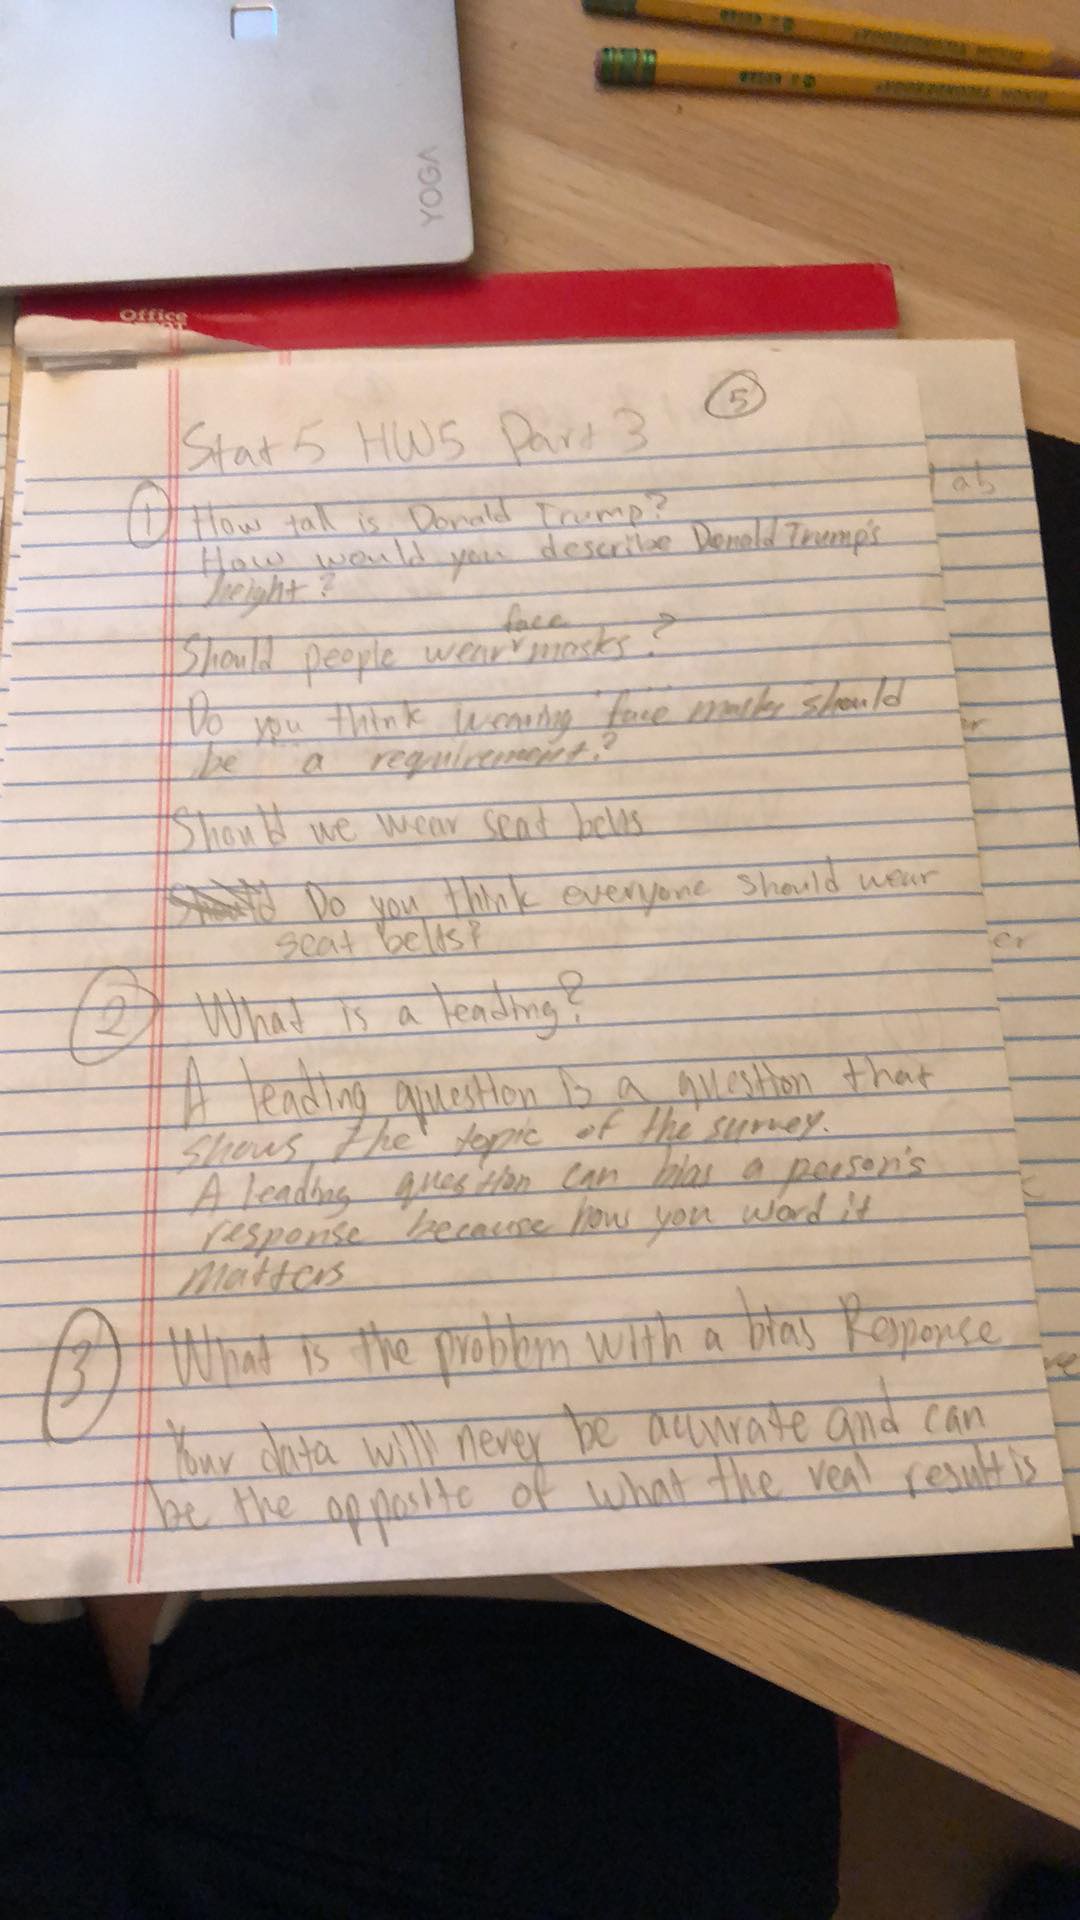 YOGA
Office
5
Stat 5 HW5 Part 3
1 How tall is Donald Trump?
How would you describe Donald Trump's
height?
face
Should people wear masks?
Do you think wearing face masks should
be a requirement?
Should we wear seat belts
Should Do you think everyone should wear
seat belts?
2 What is a leading?
A leading question is a question that
shows the topic of the survey.
A leading question can bias a person's
response because how you word it
matters
3 What is the problem with a bias Response
Your data will never be accurate and can
be the opposite of what the real result is
ab
er